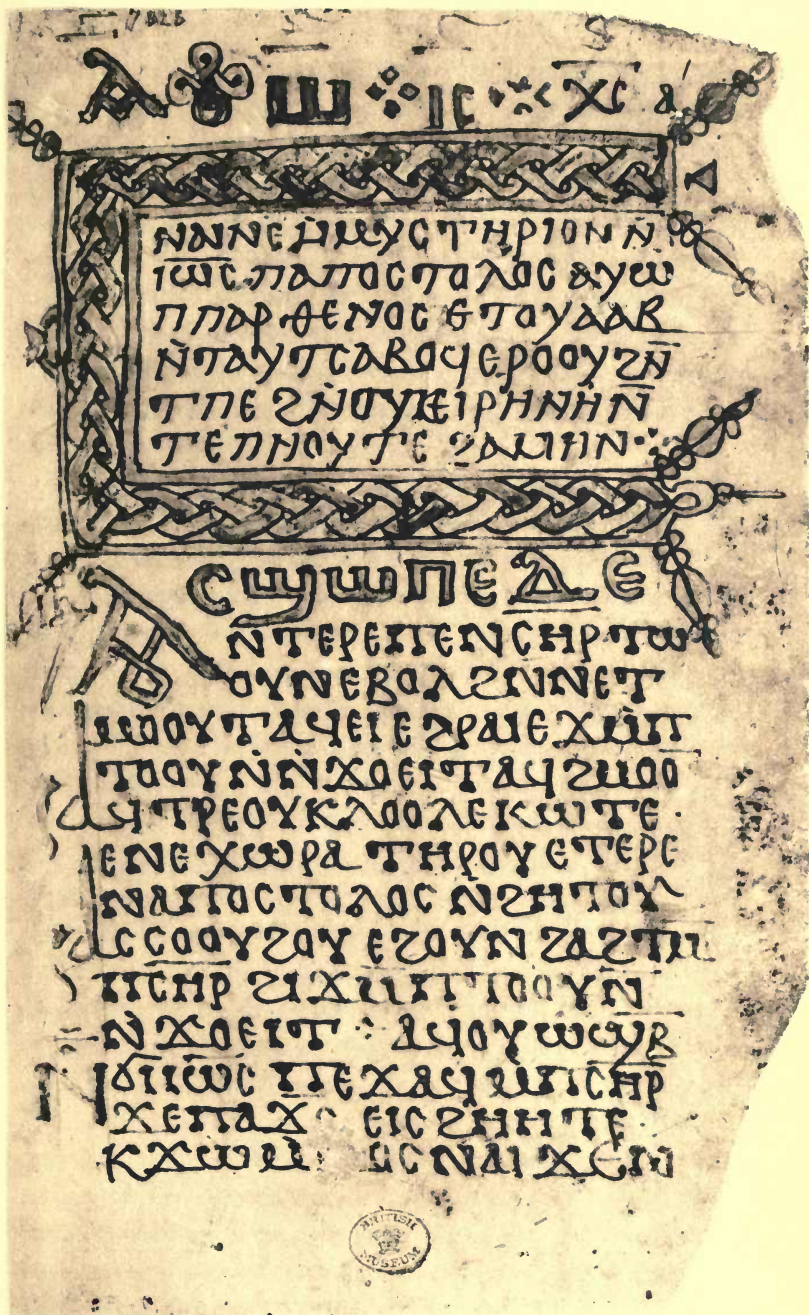 7026
Ⲁ Ⲱ ⲓⲥ ⲭⲥ ⲁ
ⲛⲁⲓⲛⲉⲙ̄ⲙⲩⲥⲧⲏⲣⲓⲟⲛⲛ̄
ⲓⲱ̅ⲥ̅ⲡⲁⲡⲟⲥⲧⲟⲗⲟⲥⲁⲩⲱ
ⲡⲡⲁⲣⲑⲉⲛⲟⲥⲉⲧⲟⲩⲁⲁⲃ
ⲛ̄ⲧⲁⲩⲧⲥⲁⲃⲟϥⲉⲣⲟⲟⲩϩⲛ̄
ⲧⲡⲉϩⲛ̄ⲟⲩⲉⲓⲣⲏⲛⲏⲛ̄
ⲧⲉⲡⲛⲟⲩⲧⲉϩⲁⲙⲏⲛ
ⲁⲥϣⲱⲡⲉⲇⲉ
ⲛⲧⲉⲣⲉⲡⲉⲛⲥⲏⲣⲧⲱ
ⲟⲩⲛⲉⲃⲟⲗϩⲛⲛⲉⲧ
ⲙⲟⲟⲩⲧⲁϥⲉⲓⲉϩⲣⲁⲓⲉϫⲙ̄ⲡ
ⲧⲟⲟⲩⲛ̄ⲛ̄ϫⲟⲉⲓⲧⲁϥϩⲙⲟⲟ
ϥⲧⲣⲉⲟⲩⲕⲗⲟⲟⲗⲉⲕⲱⲧⲉ
ⲉⲛⲉⲭⲱⲣⲁⲧⲏⲣⲟⲩⲉⲧⲉⲣⲉ
ⲛⲁⲡⲟⲥⲧⲟⲗⲟⲥⲛ̄ϩⲏⲧⲟⲩ
ⲁⲥⲥⲟⲟⲩϩⲟⲩⲉϩⲟⲩⲛϩⲁϩⲧⲙ
ⲡⲥⲏⲣϩⲓϫⲙⲡⲧⲟⲟⲩⲛ̄
ⲛ̄ϫⲟⲉⲓⲧ ⲁϥⲟⲩⲱϣⲃ̄
ⲛϭⲓⲓⲱ̅ⲥ̅ⲡⲉϫⲁϥⲙ̄ⲡⲥⲏⲣ
ϫⲉⲡⲁϫ ⲉⲓⲥϩⲏⲏⲧⲉ
ⲕϫⲱⲙ ⲟⲥⲛⲁⲓϫⲉⲛ
BRITISH
MUSEUM